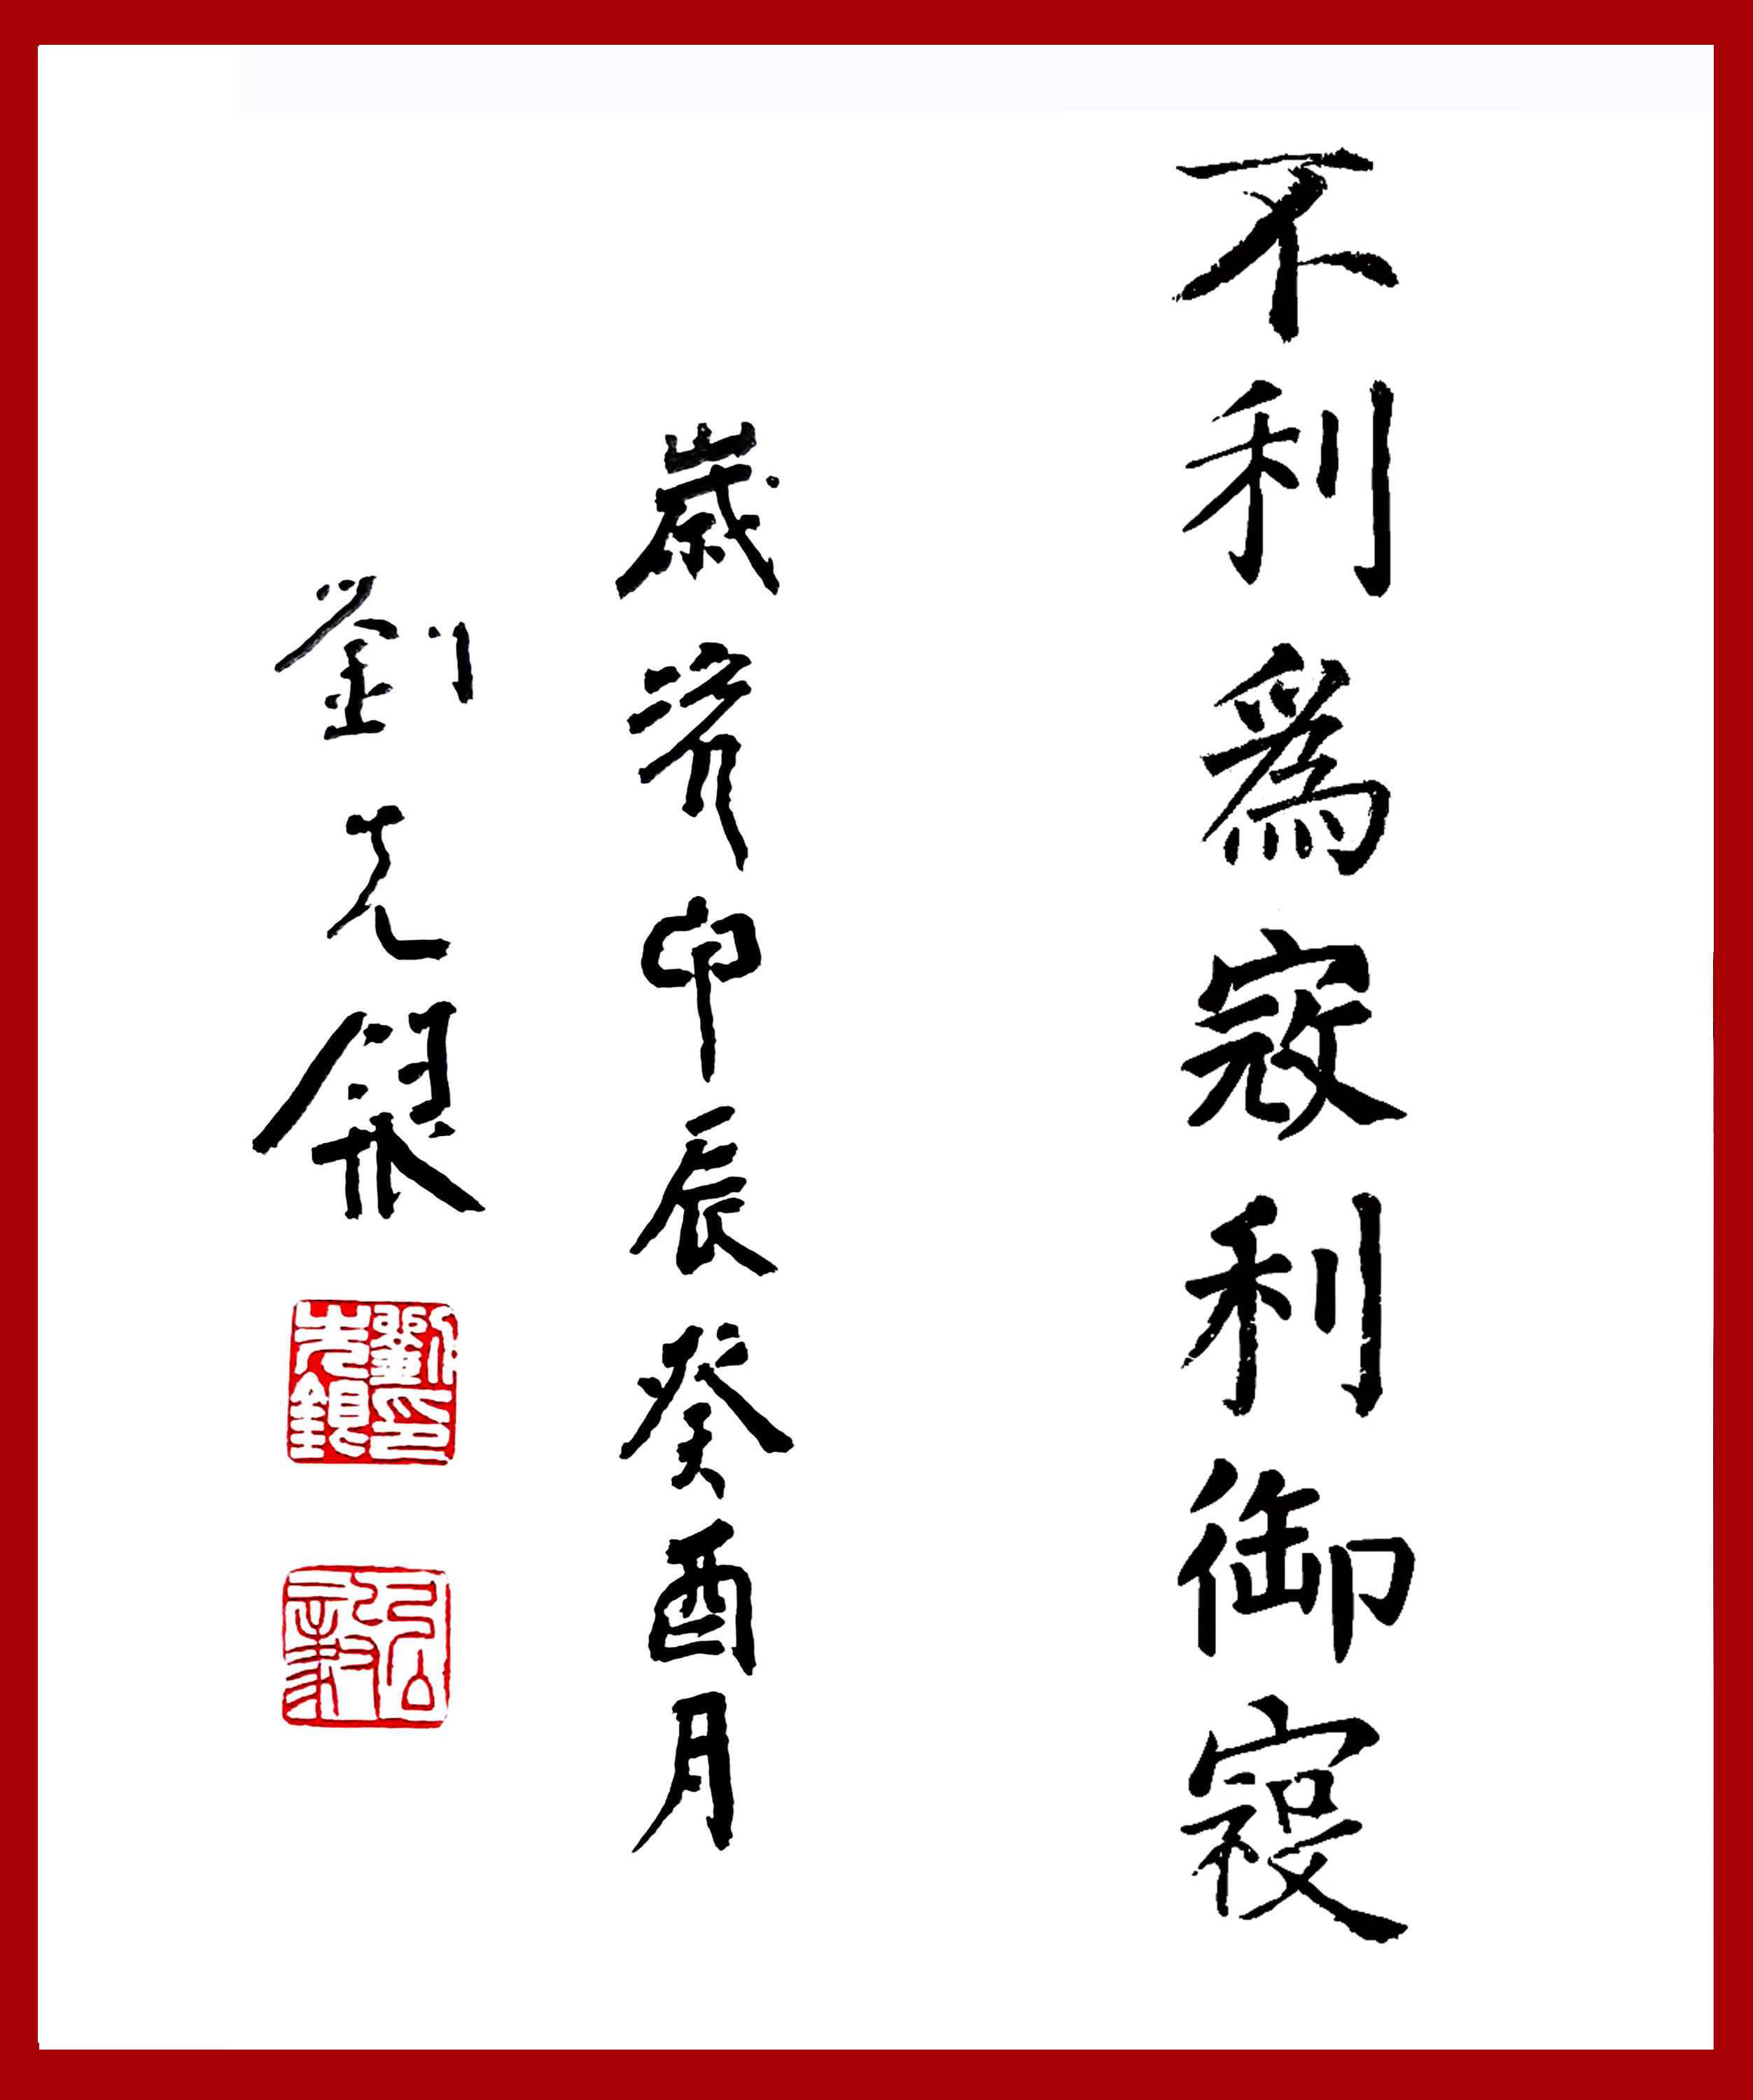 不利爲寇利御寇
歲甲辰癸酉月
劉先銀
劉印先銀